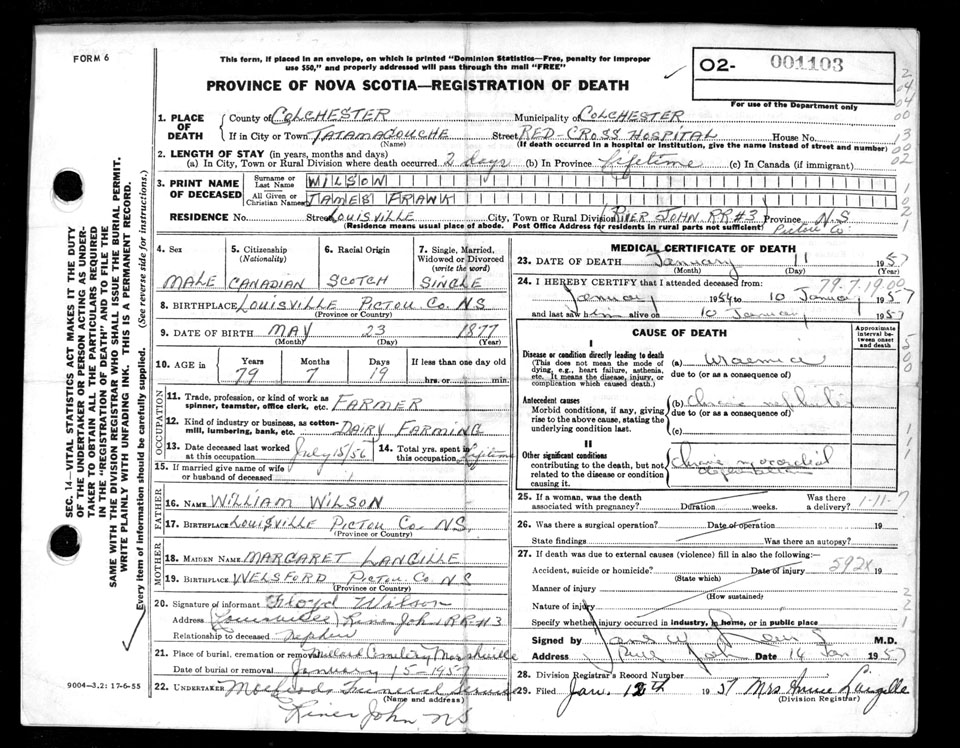 FORM 6
This form, if placed in an envelope, on which is printed "Dominion Statistics—Free, penalty for improper
use $50," and properly addressed will pass through the mail "FREE"
PROVINCE OF NOVA SCOTIA—REGISTRATION OF DEATH
02- 001103
For use of the Department only
1. PLACE OF DEATH
County of COLCHESTER Municipality of COLCHESTER
If in City or Town TATAMAGOUCHE Street RED CROSS HOSPITAL House No.
(Name) (If death occurred in a hospital or institution, give the name instead of street and number)
2. LENGTH OF STAY (in years, months and days)
(a) In City, Town or Rural Division where death occurred 2 days (b) In Province Lifetime (c) In Canada (if immigrant)
3. PRINT NAME OF DECEASED
Surname or Last Name WILSON
All Given or Christian Names JAMES FRANK
RESIDENCE No. Street LOUISVILLE City, Town or Rural Division RIVER JOHN RR#3 Province N.S
(Residence means usual place of abode. Post Office Address for residents in rural parts not sufficient) Pictou Co
4. Sex 5. Citizenship 6. Racial Origin 7. Single, Married,
(Nationality) Widowed or Divorced
(write the word)
MALE CANADIAN SCOTCH SINGLE
8. BIRTHPLACE LOUISVILLE PICTOU CO. NS
(Province or Country)
9. DATE OF BIRTH MAY 23 1877
(Month) (Day) (Year)
10. AGE in Years Months Days If less than one day old
79 7 19 hrs. or min.
OCCUPATION
11. Trade, profession, or kind of work as
spinner, teamster, office clerk, etc. FARMER
12. Kind of industry or business, as cotton-
mill, lumbering, bank, etc. DAIRY FARMING
13. Date deceased last worked
at this occupation July 15/56
14. Total yrs. spent in
this occupation Lifetime
15. If married give name of wife
or husband of deceased
FATHER
16. NAME WILLIAM WILSON
17. BIRTHPLACE LOUISVILLE PICTOU CO. NS.
(Province or Country)
MOTHER
18. MAIDEN NAME MARGARET LANGILLE
19. BIRTHPLACE WELSFORD PICTOU CO. NS
(Province or Country)
20. Signature of informant Floyd Wilson
Address (Louisville) River John RR#3
Relationship to deceased Nephew
21. Place of burial, cremation or removal Millard Cemetery Marshville
Date of burial or removal January 15-1957
22. UNDERTAKER MacLeods Funeral
(Name and address)
River John NS
MEDICAL CERTIFICATE OF DEATH
23. DATE OF DEATH January 11 1957
(Month) (Day) (Year)
24. I HEREBY CERTIFY that I attended deceased from: 79.7.19.00
January 1954 to 10 January 1957
and last saw him alive on 10 January 1957
CAUSE OF DEATH
Approximate interval between onset and death
I
Disease or condition directly leading to death
(This does not mean the mode of
dying, e.g., heart failure, asthenia,
etc. It means the disease, injury, or
complication which caused death.)
(a) Uraemia
due to (or as a consequence of)
Antecedent causes
Morbid conditions, if any, giving
rise to the above cause, stating the
underlying condition last.
(b) Chronic nephritis
due to (or as a consequence of)
(c)
II
Other significant conditions
contributing to the death, but not
related to the disease or condition
causing it.
Chronic myocardial
degeneration
25. If a woman, was the death Was there
associated with pregnancy? Duration weeks. a delivery? 1-11-7
26. Was there a surgical operation? Date of operation 19
State findings Was there an autopsy?
27. If death was due to external causes (violence) fill in also the following:—
Accident, suicide or homicide? Date of injury 592X 19
(State which)
Manner of injury
(How sustained)
Nature of injury
Specify whether injury occurred in industry, in home, or in public place
Signed by M.D.
Address River John Date 14 Jan 1957
28. Division Registrar's Record Number
29. Filed Jan. 12th 1957 Mrs Annie Langille
(Division Registrar)
9004—3.2: 17-6-55
SEC. 14—VITAL STATISTICS ACT MAKES IT THE DUTY
OF THE UNDERTAKER OR PERSON ACTING AS UNDER-
TAKER TO OBTAIN ALL THE PARTICULARS REQUIRED
IN THE "REGISTRATION OF DEATH" AND TO FILE THE
SAME WITH THE DIVISION REGISTRAR WHO SHALL ISSUE THE BURIAL PERMIT.
WRITE PLAINLY WITH UNFADING INK. THIS IS A PERMANENT RECORD.
Every item of information should be carefully supplied. (See reverse side for instructions.)